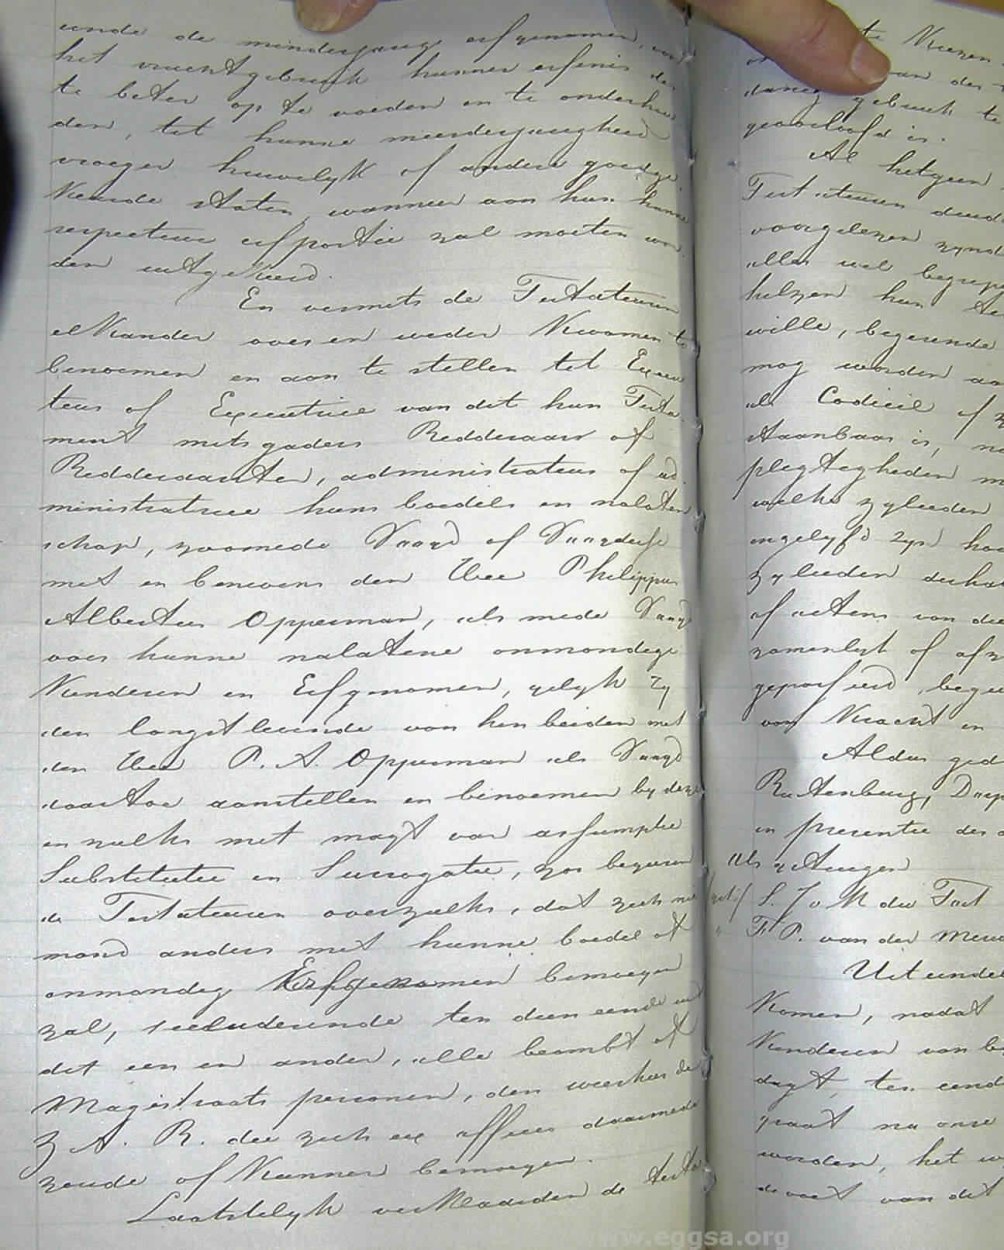 einde de minderjarige erfgenamen, van
het vruchtgebruik hunner erfenis des
te beter op te voeden en te onderhou
den, tot hunne meerderjarigheid
vroeger huwelyk of andere goedge
Keurde staten, wanneer aan hun hunne
respective erfportie zal moeten wor
den uitgekeerd.
En vermits de Testateuren
elkander over en weder Kwamen te
benoemen en aan te stellen tot Execu
teur of Executrice van dit hun Testa
ment mitsgaders Redderaar of
Redderaarster, administrateur of ad
ministratrice huns boedels en nalaten
schap, zoomede Voogd of Voogdesse
met en benevens den Wee Philippus
Albertus Opperman, als mede Voogd
voor hunne nalatene onmondige
Kinderen en Erfgenamen, gelyk zy
den langstlevende van hen beiden met
den Wee P. A. Opperman als Voogd
daartoe aanstellen en benoemen by deze
en zulks met magt van assumptie
Substitutie en Surrogatie, zoo begeeren
de Testateuren overzulks, dat zich nie
mand anders met hunne boedel of
onmondig Erfgenamen bemoeyen
zal, secluderende ten dien einde uit
dit een en ander, alle beambt of
Magistraats personen, den weesheer de
Z A. R. die zich ex officio daarmede
zoude of Kunnen bemoeyen.
Laatstelyk verklaarden de Testa
te Kiezen
van de
gebruik te
geoorloofd is.
Al hetgeen
Testateuren duid
voorgelezen zynd
alles wel begrep
hilzen hun
wille, begerende
mog worden
als Codicil of
staanbaar is, na
plegtigheden
welke zyleden
ingelyfd zyn
zyleden derha
of actens van de
zamenlyk of afz
gepasseerd, bege
van Kracht en
Aldus ged
Rustenburg, Dorp
in presentie des
als getuigen
(get:) S. J. v M der Tast
" F P. van der Merwe
Uiteinde
Komen, nadat
Kinderen van be
dagt, ten eind
gaat na onse
worden, het
de voet van dit
www.eggsa.org